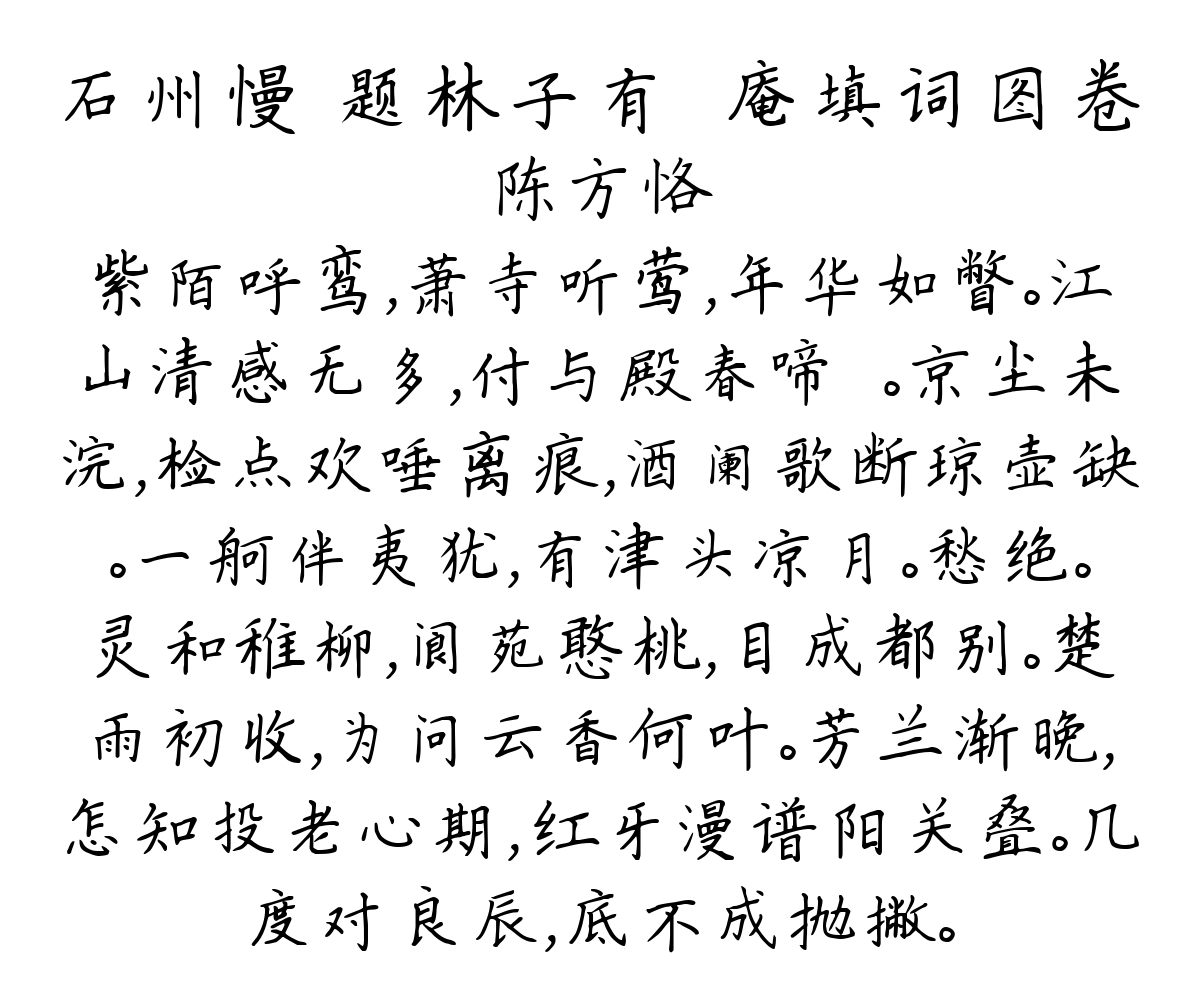 石州慢 题林子有 庵填词图卷
陈方恪
紫陌呼鸾,萧寺听莺,年华如瞥。江
山清感无多,付与殿春啼 。京尘未
浣,检点欢唾离痕,酒阑歌断琼壶缺
。一舸伴夷犹,有津头凉月。愁绝。
灵和稚柳,阆苑憨桃,目成都别。楚
雨初收,为问云香何叶。芳兰渐晚,
怎知投老心期,红牙漫谱阳关叠。几
度对良辰,底不成抛撇。